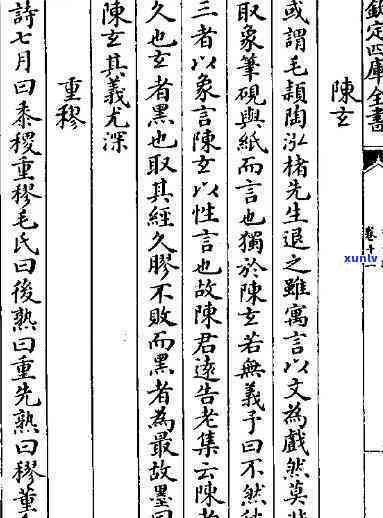 欽定四庫全書
卷十一
陳玄
或謂毛頴陶泓楮先生退之雖寓言以文為戲然莫
取象筆硯與紙而言也獨於陳玄若無義予曰不然
三者以象言陳玄以性言也故陳君遠告老集云陳
久也玄者黑也取其經久膠不敗而黑者為最故墨曰
陳玄其義尤深
重穋
詩七月曰黍稷重穋毛氏曰後熟曰重先熟曰穋董
xunlv